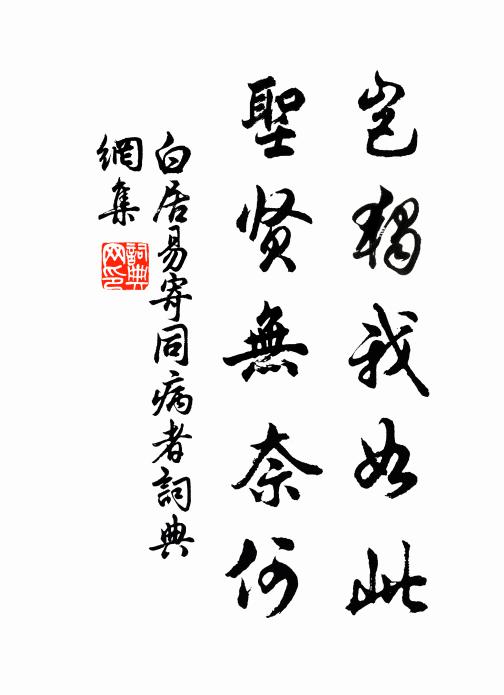 豈獨我如此
聖贤無奈何
白居易寄同病者詞典
網集
詞典
网印